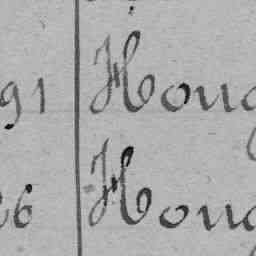 91 Houg
26 Houg